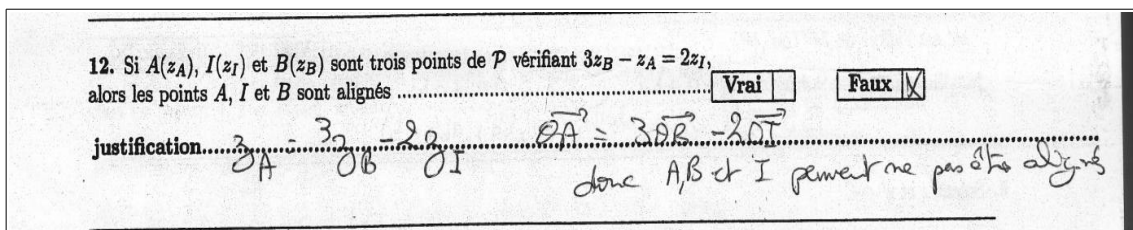 12. Si A(z_A), I(z_I) et B(z_B) sont trois points de P vérifiant 3z_B − z_A = 2z_I,
alors les points A, I et B sont alignés ........ Vrai ☐ Faux ☒
justification... z_A = 3z_B − 2z_I OA⃗ = 3OB⃗ − 2OI⃗
donc A,B et I peuvent ne pas être alignés